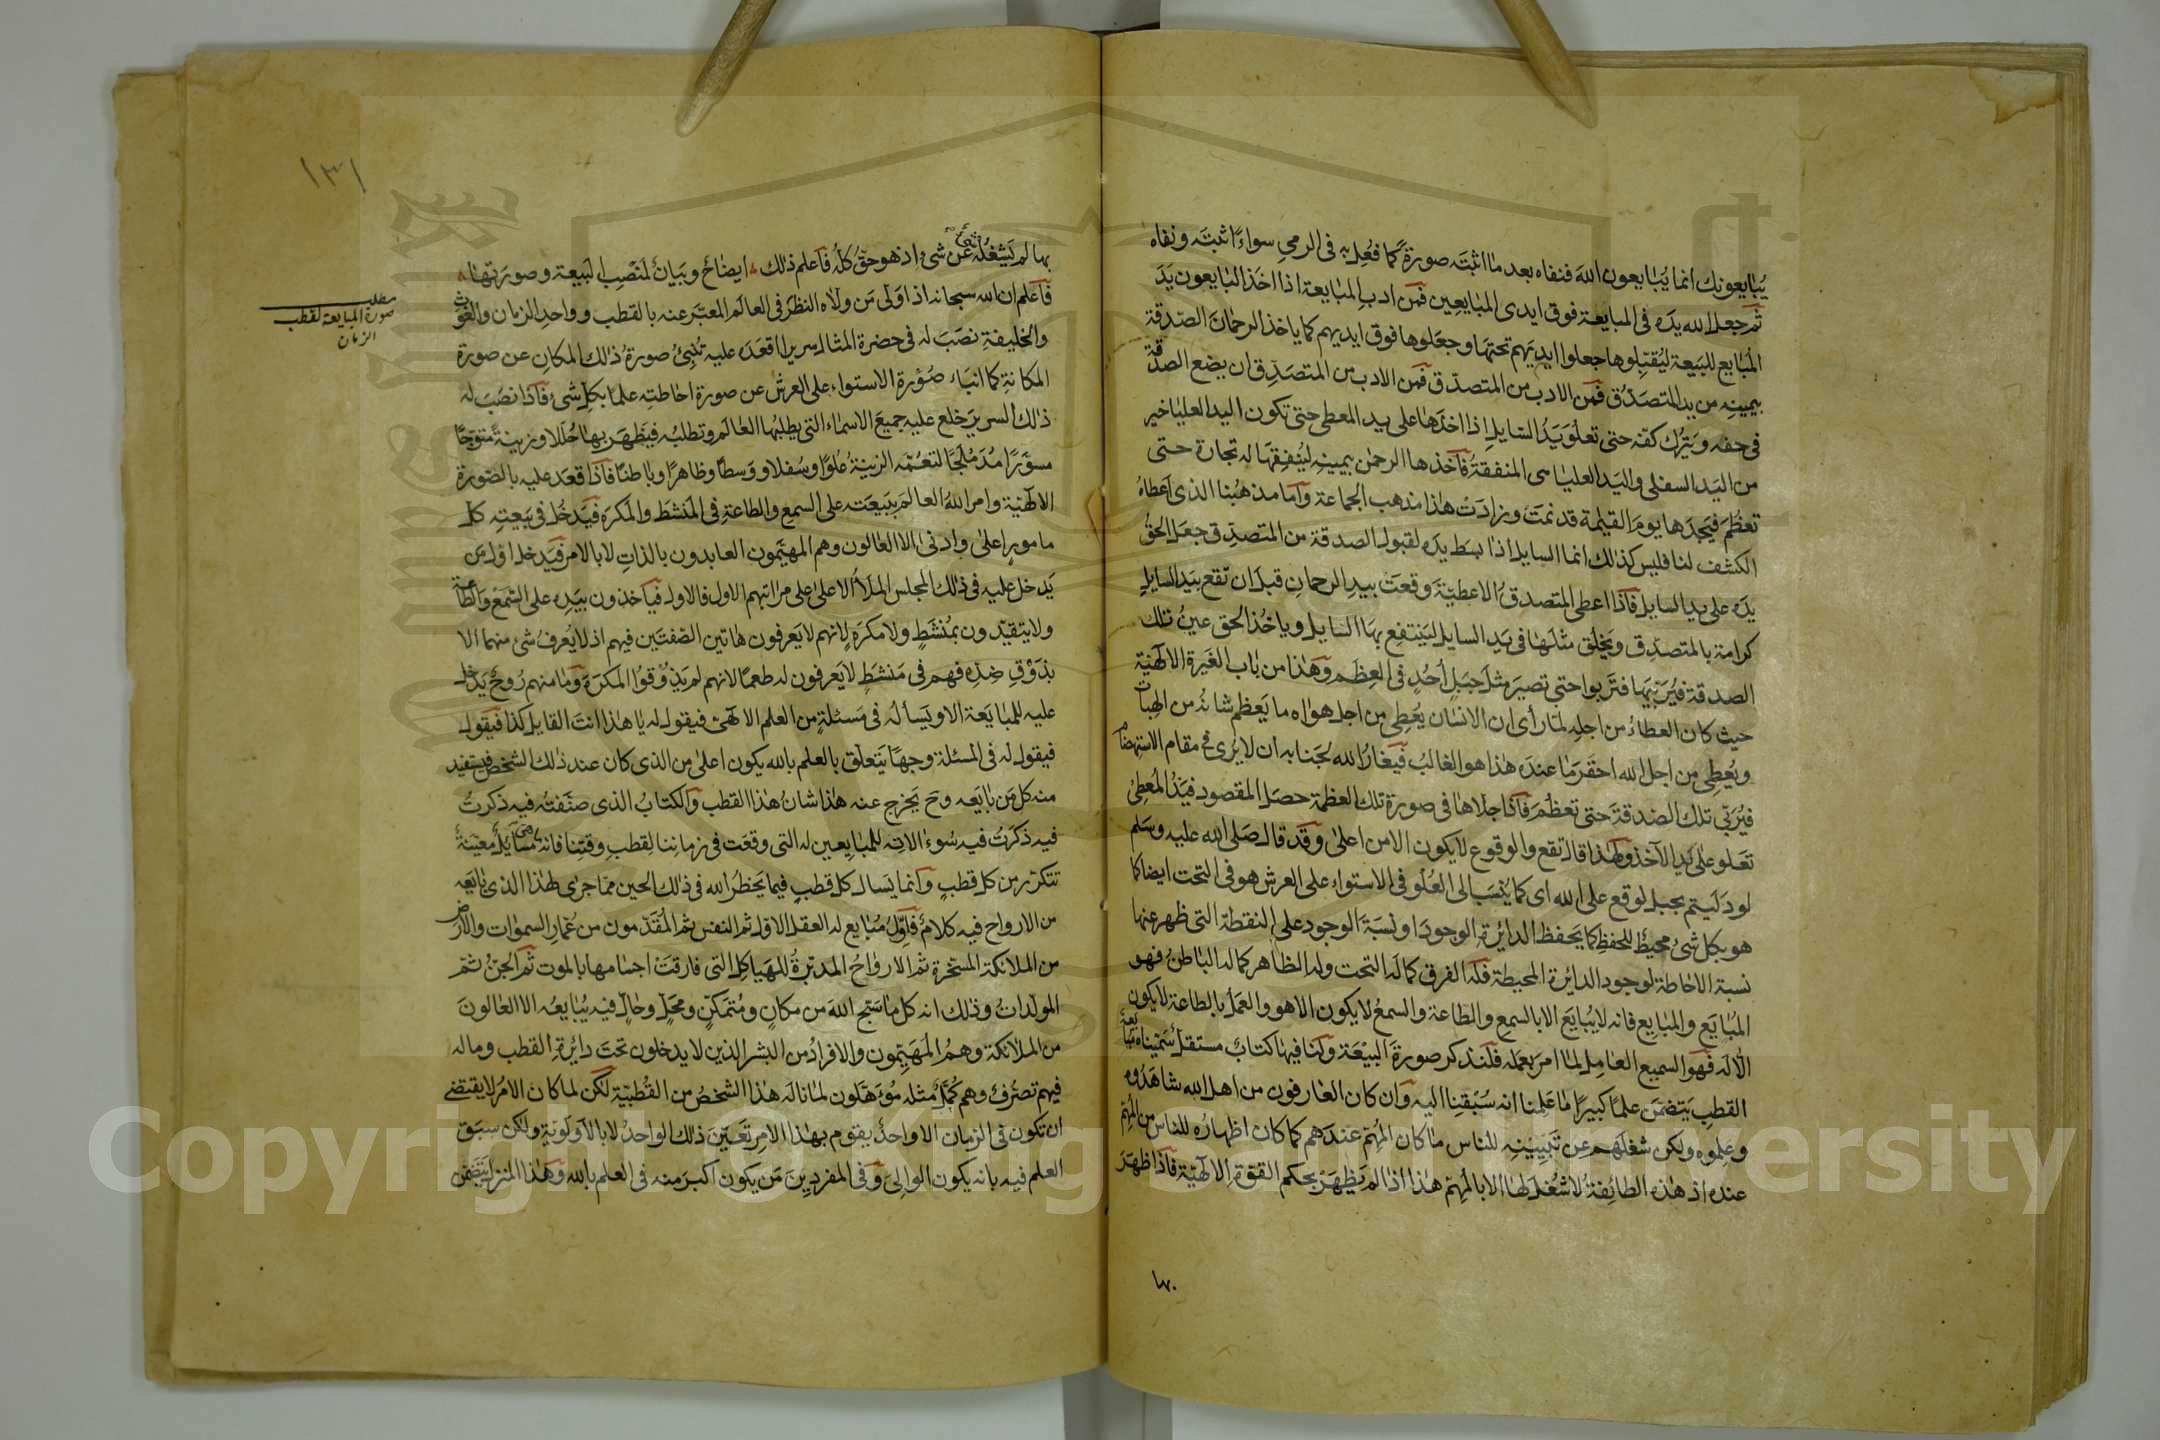 يُبَايعونك انما يُبَايعون اللهَ فنفاه بعد ما اثبتَه صورةً كما فُعِل به في الرمي سواءً اثبتَه ونفاه
ثمّ جعل الله يدَه في المبايعة فوق ايدي المبايِعين فمن ادبِ المبَايعة اذا اخذ المبَايعون يَدَ
المُبَايع للبَيعة ليُقبّلوها جعلوا ايديَهم تحتها وجعَلوها فوق ايديهم كما ياخذ الرحمان الصّدقة
بيمينه من يد المتصدّق فمن الادب من المتصدّق ان يضع الصدقة
في كفه ويَترك كفّه حتى تعلو يَدُ السّايل اذا اخذها على يد المعطي حتى تكون اليد العليا خير
من اليَد السفلى واليَد العليا هي المنفقةُ فأخذها الرحمن بيمينه ليُنفقها له تجارة حتى
تعظُمَ فيَجدَها يومَ القيٰمة قد نمَت وزادَتْ هٰذا مذهب الجماعة وأما مذهبُنا الذي اعطاهُ
الكشف لنا فليس كذلك انما السايل اذا بسَط يدَه لقبول الصدقة من المتصدِّق جعَل الحقُّ
يدَه على يد السايل فاذا اعطى المتصدقُ الاعطيّةَ وقعَت بيدِ الرحمان قبل ان تقع بيَد السايلِ
كرامة بالمتصدّق ويَخلق مثلَها في يَد السايل ليَنتفِع بهَا السايل وياخذُ الحق عينُ تلك
الصدقة فيُرَبّيَها فتَربوا حتى تصيرَ مثلَ جبَلِ أحُدٍ في العِظَم وهٰذا من بَاب الغَيرة الالٰهيّة
حيث كان العطاءُ من اجلِه لمّا رأى ان الانسَان يُعطي من اجل هوَاه ما يَعظم شانُه من الهِبات
ويُعطِي من اجل الله احقرَ ما عندَه هٰذا هو الغالبُ فيَغارُ الله لجَنابه ان لا يُرى في مقام الاستهضام
فيُرَبّي تلك الصَدقةَ حتى تعظُمَ فاذا جلاها في صورة تلك العظمة حصَل المقصود فيَدُ المُعطِي
تَعلو على يَد الآخذ ولهٰذا قال تقع والوقوع لا يكون الا من اعلى وقد قال صَلى الله عليه وسَلم
لو دَليتم بحبل لوقع على الله اي كما يُنسَب الى العُلو في الاستواء على العرش هو في التحت ايضا كما
هو بكل شيءٍ محيطٌ للحفظِ كما يحفظ الدائرة الوجودَ او نسبَةَ الوجود على النقطة التي ظهر عنها
نسبة الاحاطة لوجود الدايرة المحيطة فلَه الفرق كما لَه التحت وله الظاهر كما له البَاطنُ فهو
المُبَايَع والمُبَايع فانه لا يُبَايَع الا بالسمع والطّاعة والسمعُ لا يكون الا هو والعمَلُ بالطاعة لا يكون
الّا لَه فهو السميع العَامِل لما امرَ بعَمله فلنذكر صورةَ البيْعَة ولنا فيهَا كتابٌ مستقلٌ سَمّيناه مُبَايعةَ
القطب يَتضمَن علمًا كبيرًا ما عَلِمنا انه سُبَقنا اليه وان كان العَارفون من اهل الله شاهَدُوه
وعلموه ولكن شغلَهم عن تَبيينِه للناس ما كان المُهِمّ عندَهم كما كان اظهارُه للناس من المُهِمّ
عنده اذ هٰذه الطائِفةُ لا شُغل لها الا بالمُهِمّ هٰذا اذا لم يَظهَرْ بحكم القوّة الالٰهيّة فاذا ظهَرَ
بها لم يَشغلُه شيءٌ عن شيءٍ اذ هو حقٌ كلُّه فاعلم ذلك ايضاحٌ وبَيانٌ لمَنْصِب البَيعة وصورَتها
فاعلم ان الله سبحانه اذا وَلى مَن ولّاه النظرَ في العالَم المعبَّر عنه بالقطب وواحدِ الزمان والغوث
والخليفةِ نصَبَ له في حضرة المثال سريرا اقعَدَه عليه تُنبِئُ صورةُ ذٰلك المكان عن صورة
المكانة كما انبَاء صُوْرة الاستواء على العرش عن صورة احاطتِه علمًا بكل شيءٍ فاذا نصَبَ له
ذٰلك السرير خلع عليه جميعَ الاسمَاء التي يطلبُها العَالَم وتطلبُه فيَظهَرَ بها حُلَلا وزينةً متوّجًا
مسوَّرًا مُدَملَجًا لتعُمّه الزينةُ علوًا وسُفلا ووَسطًا وظاهرًا وباطنًا فاذا قعَد عليه بالصّورة
الالٰهيّة وامر اللهُ العالمَ ببَيعَته على السمع والطاعة في المَنشطِ والمَكرَه فيَدخُل في بَيعتِه كل
مامورٍ اعلى وادنى الا العَالون وهم المهيّمون العَابدون بالذاتِ لا بالامر فيَدخل اوّل من
يَدخل عليه في ذٰلك المجلس المَلأُ الاعلى على مراتبهم الاول فالاول فيَأخذون بيَدِه على السَّمْع والطّاعة
ولا يتقيّدون بمُنشَطٍ ولا مكرَهٍ لانهم لا يَعرفون هٰاتين الصّفتَين فيهم اذ لا يُعرفُ شيءٌ منهما الا
بذَوْقِ ضِدّه فهم في مَنشَطٍ لا يَعرفون له طعمًا لانهم لم يَذُوْقوا المَكرَه وما منهم رُوحٌ يَدْخل
عليه للمُبَايَعة الا ويَسألُه في مَسئلةٍ من العلم الالٰهي فيقول له يا هٰذا انت القايل كذا فيَقول
فيقول له في المسئلة وجهًا يَتعلق بالعلم بالله يكون اعلى من الذي كان عند ذٰلك الشخص فيستفيد
منه كل مَن بَايَعه وح يَخرج عنه هٰذا شانُ هٰذا القطب والكتابُ الذي صنّفتُه فيه ذكرتُ
فيه ذكرَتُ فيه سُوءالاته للمُبَايعين له التي وقعَت في زمانِنا لقطبِ وقتِنا فانه مسَايلُ معيّنةٌ
تتكرّر من كل قطبٍ وانما يُسال كل قطبٍ فيما يَخطُر الله في ذٰلك الحين مما جرٰى لهٰذا الذي بَايَعه
من الارواح فيه كلامٌ فاوّلُ مُبَايع له العقل الاوّل ثم النفس ثم المُقدّمون من عُمّارِ السموات والارض
من الملائكة المسَخرة ثم الارواحُ المدبّرةُ للهَياكل التي فارقَتْ اجسَامها بالموت ثم الجِنُّ ثمّ
المولّداتُ وذٰلك انه كل ما سَبَح اللهَ من مكانٍ ومُتمَكّنٍ ومحَلٍّ وحَالٍّ فيه يُبَايعُه الا العَالونَ
من الملائكة وهم المُهَيّمون والافرادُ من البشر الذين لا يدخلون تحتَ دايُرة القطب وما له
فيهم تصَرّف وهم كُمّلٌ مثله مُوءَهّلون لما نالَه هٰذا الشخصُ من القُطبيّة لكن لما كان الامرُ لا يقتضي
ان تكون في الزمان الا واحدٌ يقوم بهٰذا الامر تعَيّنَ ذلك الواحدُ لا بالأولَويّةِ ولكن سبَقِ
العلم فيه بانه يكون الوالي وفي المفردِيْنَ مَن يكون اكبرَ منه في العلم بالله وهٰذا المنزل يَتضمّن
مطلب
صورة المبايعة لقطب
الزمان
١٣١